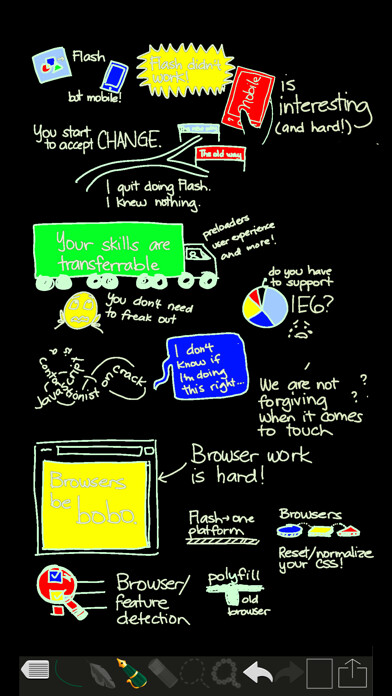 Flash
but mobile!
Flash didn't
work!
Mobile
is
interesting
(and hard!)
You start
to accept CHANGE.
The new way
The old way
I quit doing Flash.
I knew nothing.
Your skills are
transferrable
preloaders
user experience
and more!
You don't need
to freak out
do you have
to support
IE6?
JavaScript
is a
contortionist on
crack
I don't
know if
I'm doing
this right...
We are not
forgiving
when it comes
to touch
? ? ?
Browsers
be
bobo.
Browser work
is hard!
Flash→one
platform
Browsers
Reset/normalize
your CSS!
Browser/
feature
detection
polyfill
old
browser